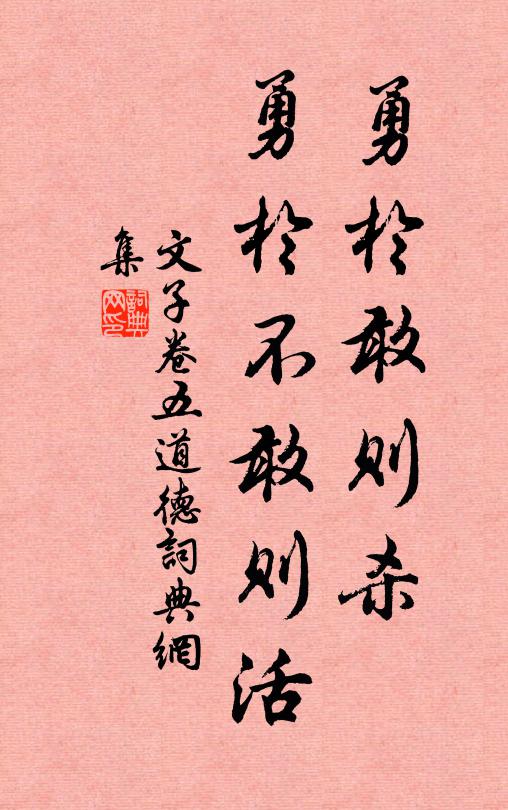 勇於敢则杀
勇於不敢则活
文子卷五道德詞典網
集
詞典
网印